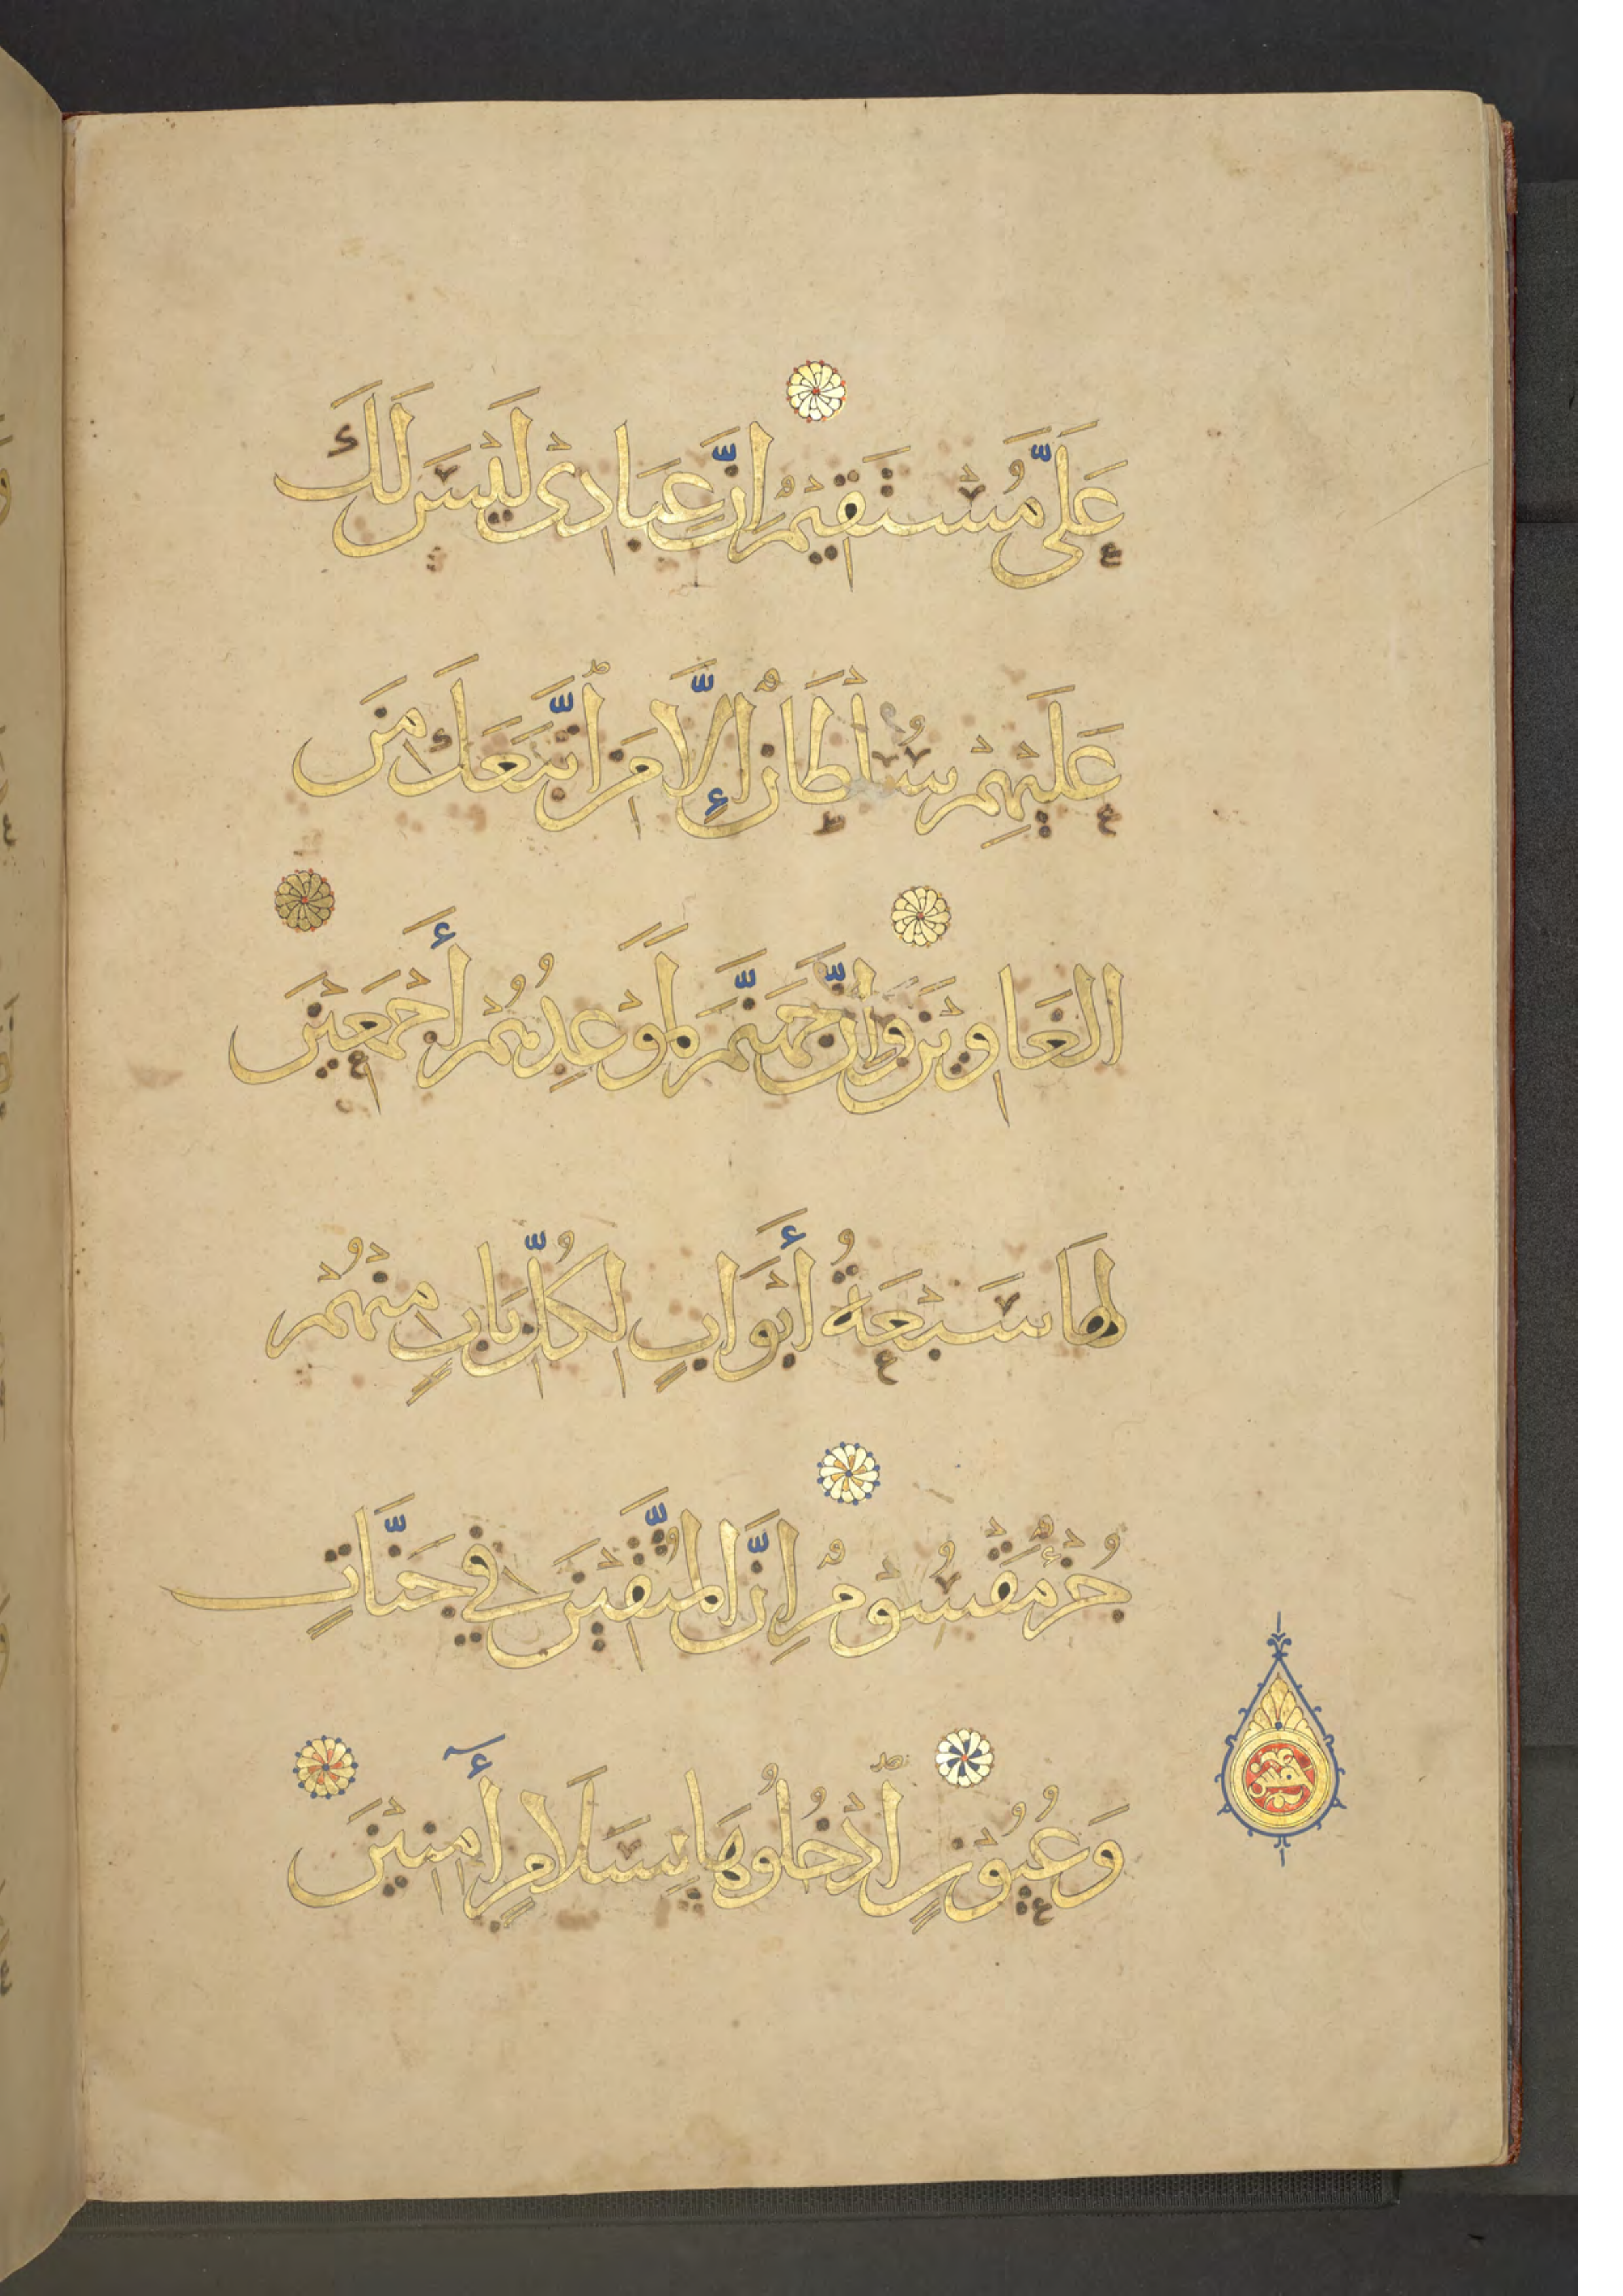 عَلَىَّ مُسْتَقِيْمٌ اِنَّ عِبَادِىْ لَيْسَ لَكَ
عَلَيْهِمْ سُلْطَانٌ إِلَّا مَنِ اتَّبَعَكَ مِنَ
الْغَاوِيْنَ وَاِنَّ جَهَنَّمَ لَمَوْعِدُهُمْ أَجْمَعِيْنَ
لَهَا سَبْعَةُ أَبْوَابٍ لِكُلِّ بَابٍ مِنْهُمْ
جُزْءٌ مَقْسُوْمٌ اِنَّ الْمُتَّقِيْنَ فِي جَنَّاتٍ
وَعُيُوْنٍ اُدْخُلُوهَا بِسَلَامٍ أٓمِنِيْنَ